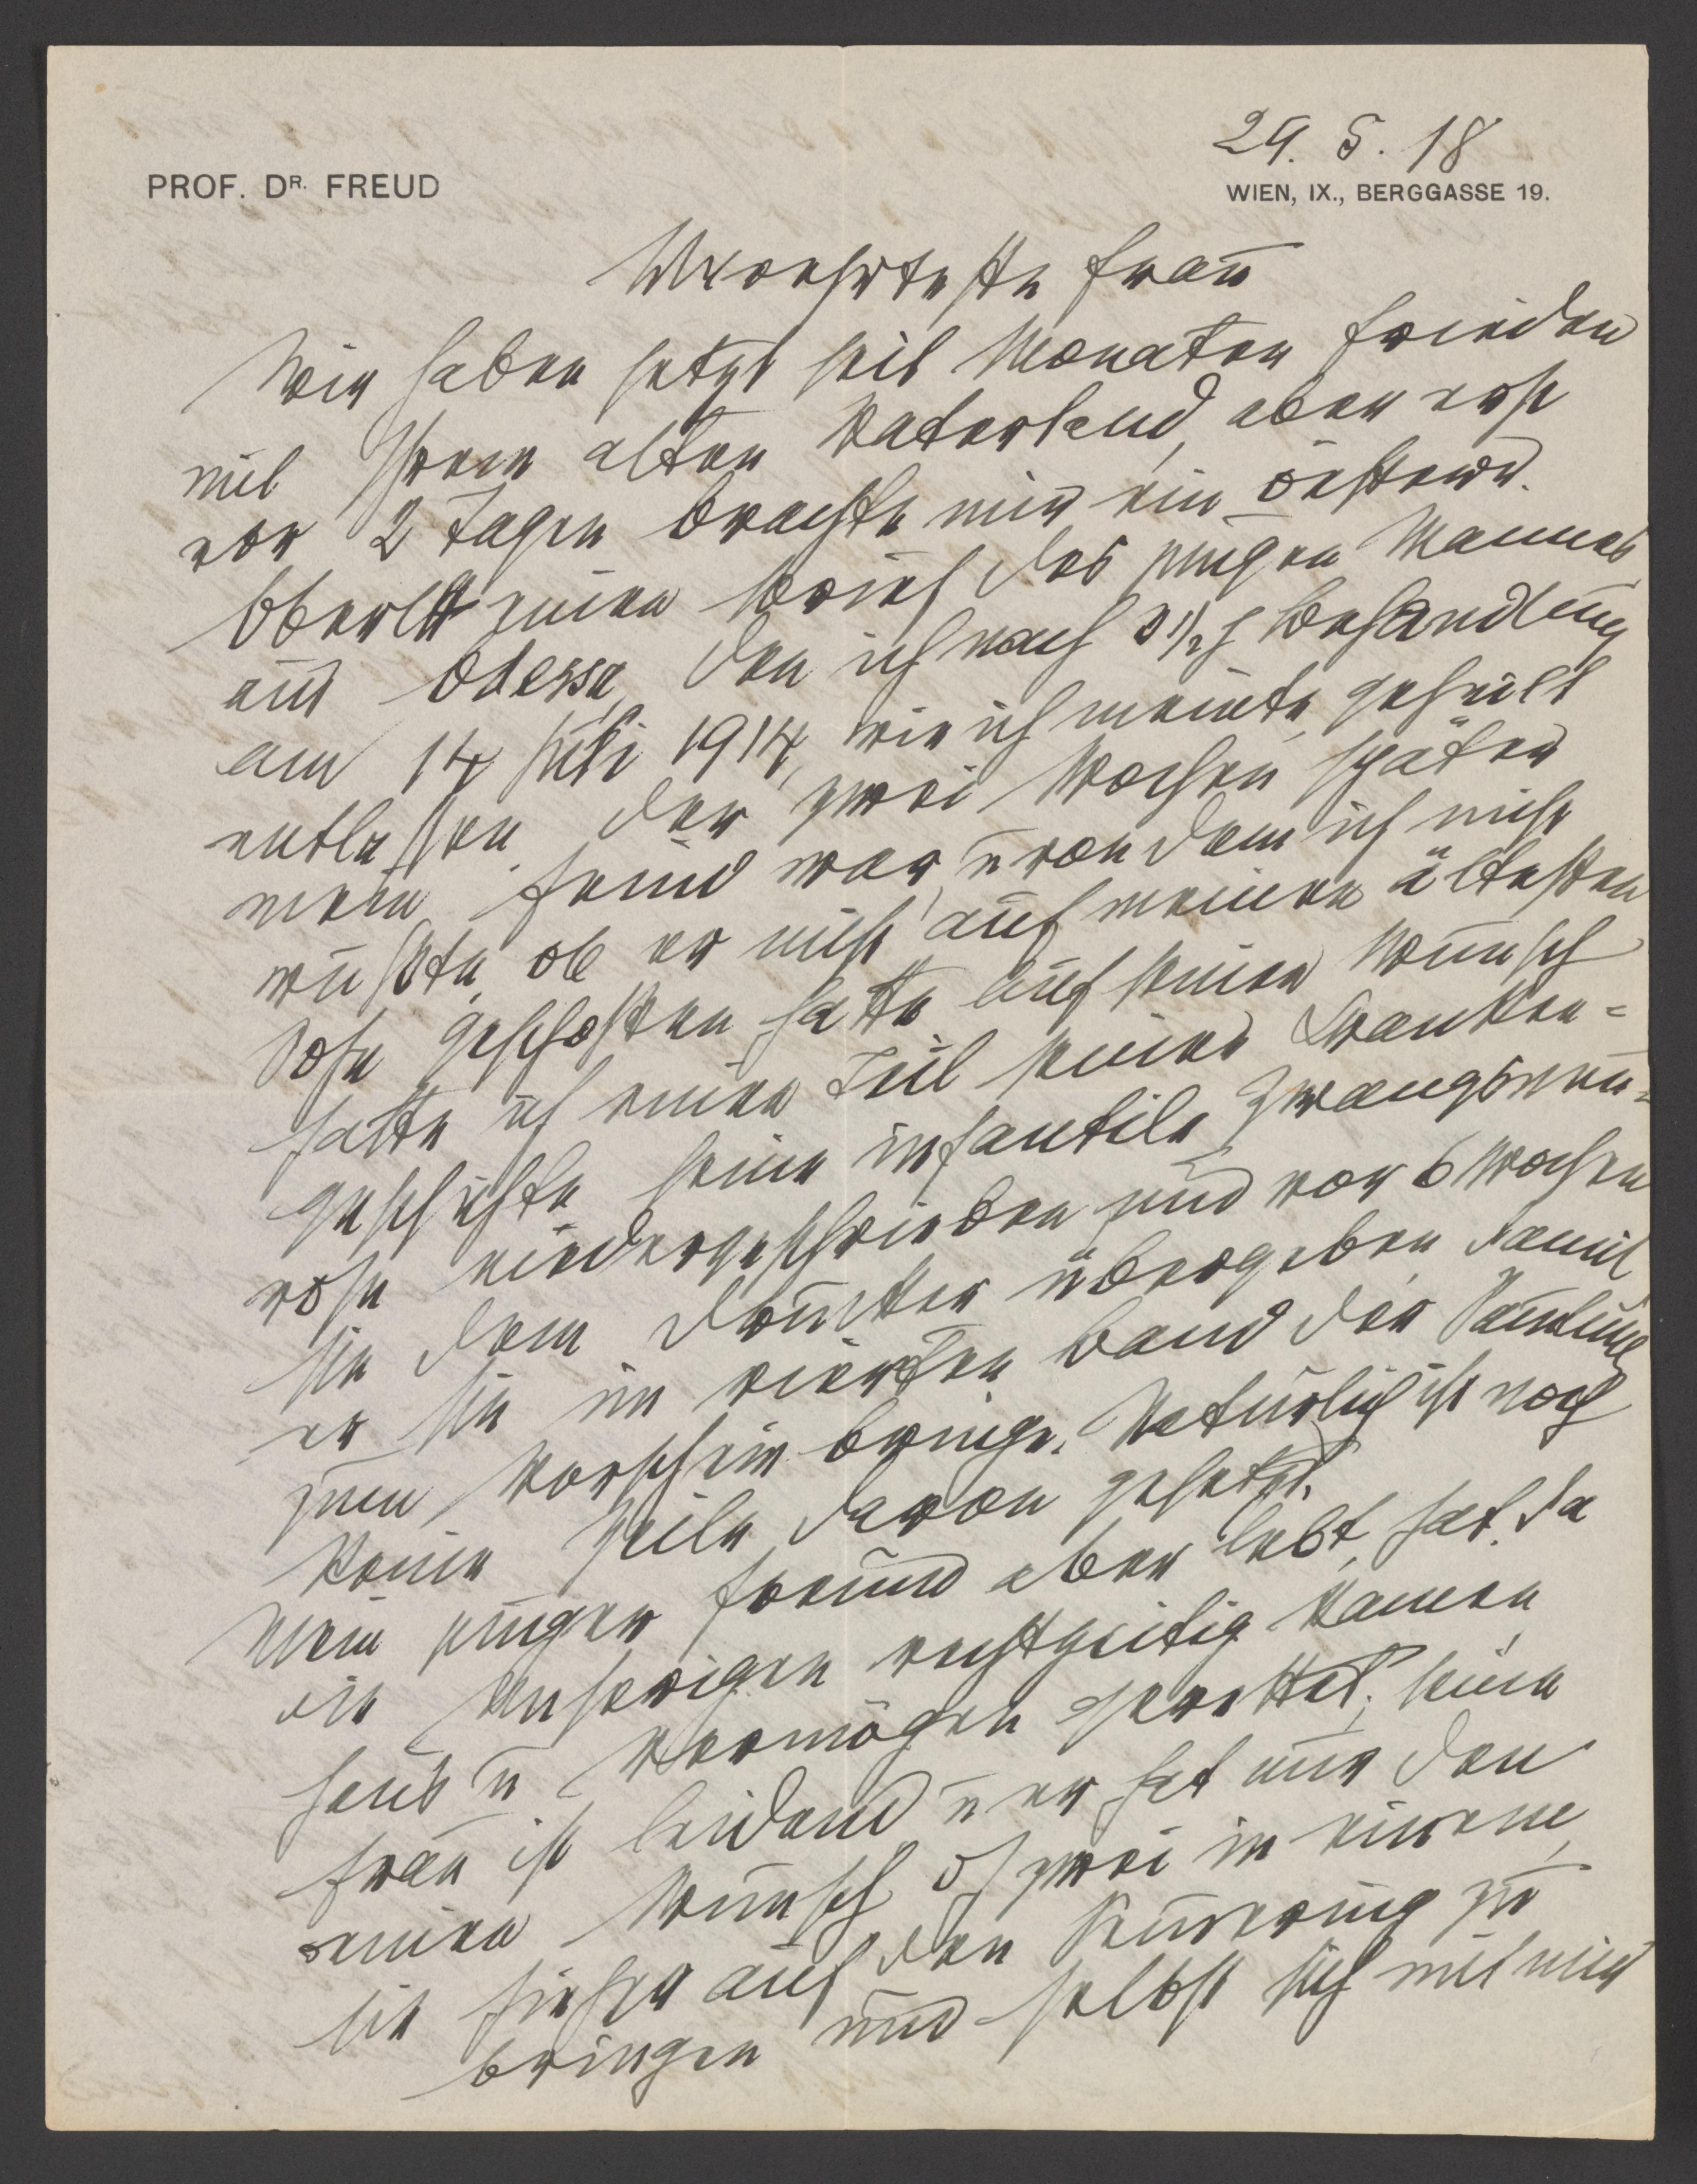 29. 5. 18
PROF. DR. FREUD
WIEN, IX., BERGGASSE 19.
Verehrteste Frau
Wir haben jetzt seit Monaten Frieden
mit Ihrem alten Vaterland, aber erst
vor 2 Tagen brachte mir ein österr.
Oberlt einen Brief des jungen Mannes
aus Odessa, den ich nach 3 1/2 J Behandlung
am 14 Juli 1914, wie ich meinte, geheilt
entlassen, der zwei Wochen später
mein Feind war, u von dem ich nicht
wußte, ob er nicht auf meinen ältesten
Sohn geschossen hatte. Auf seinen Wunsch
hatte ich einen Teil seiner Kranken=
geschichte, seine infantile Zwangsneu=
rose niedergeschrieben und vor 6 Wochen
sie dem Drucker übergeben, damit
er sie im vierten Band der Samlung
zum Vorschein bringe. Natürlich ist noch
keine Zeile davon gesetzt.
Mein junger Freund aber lebt, hat, da
die Unserigen rechtzeitig kamen,
Haus u Vermögen gerettet; seine
Frau ist leidend u er hat nur den
einen Wunsch, zwei in einem,
sie hieher auf den Semering zu
bringen und selbst sich mit mir